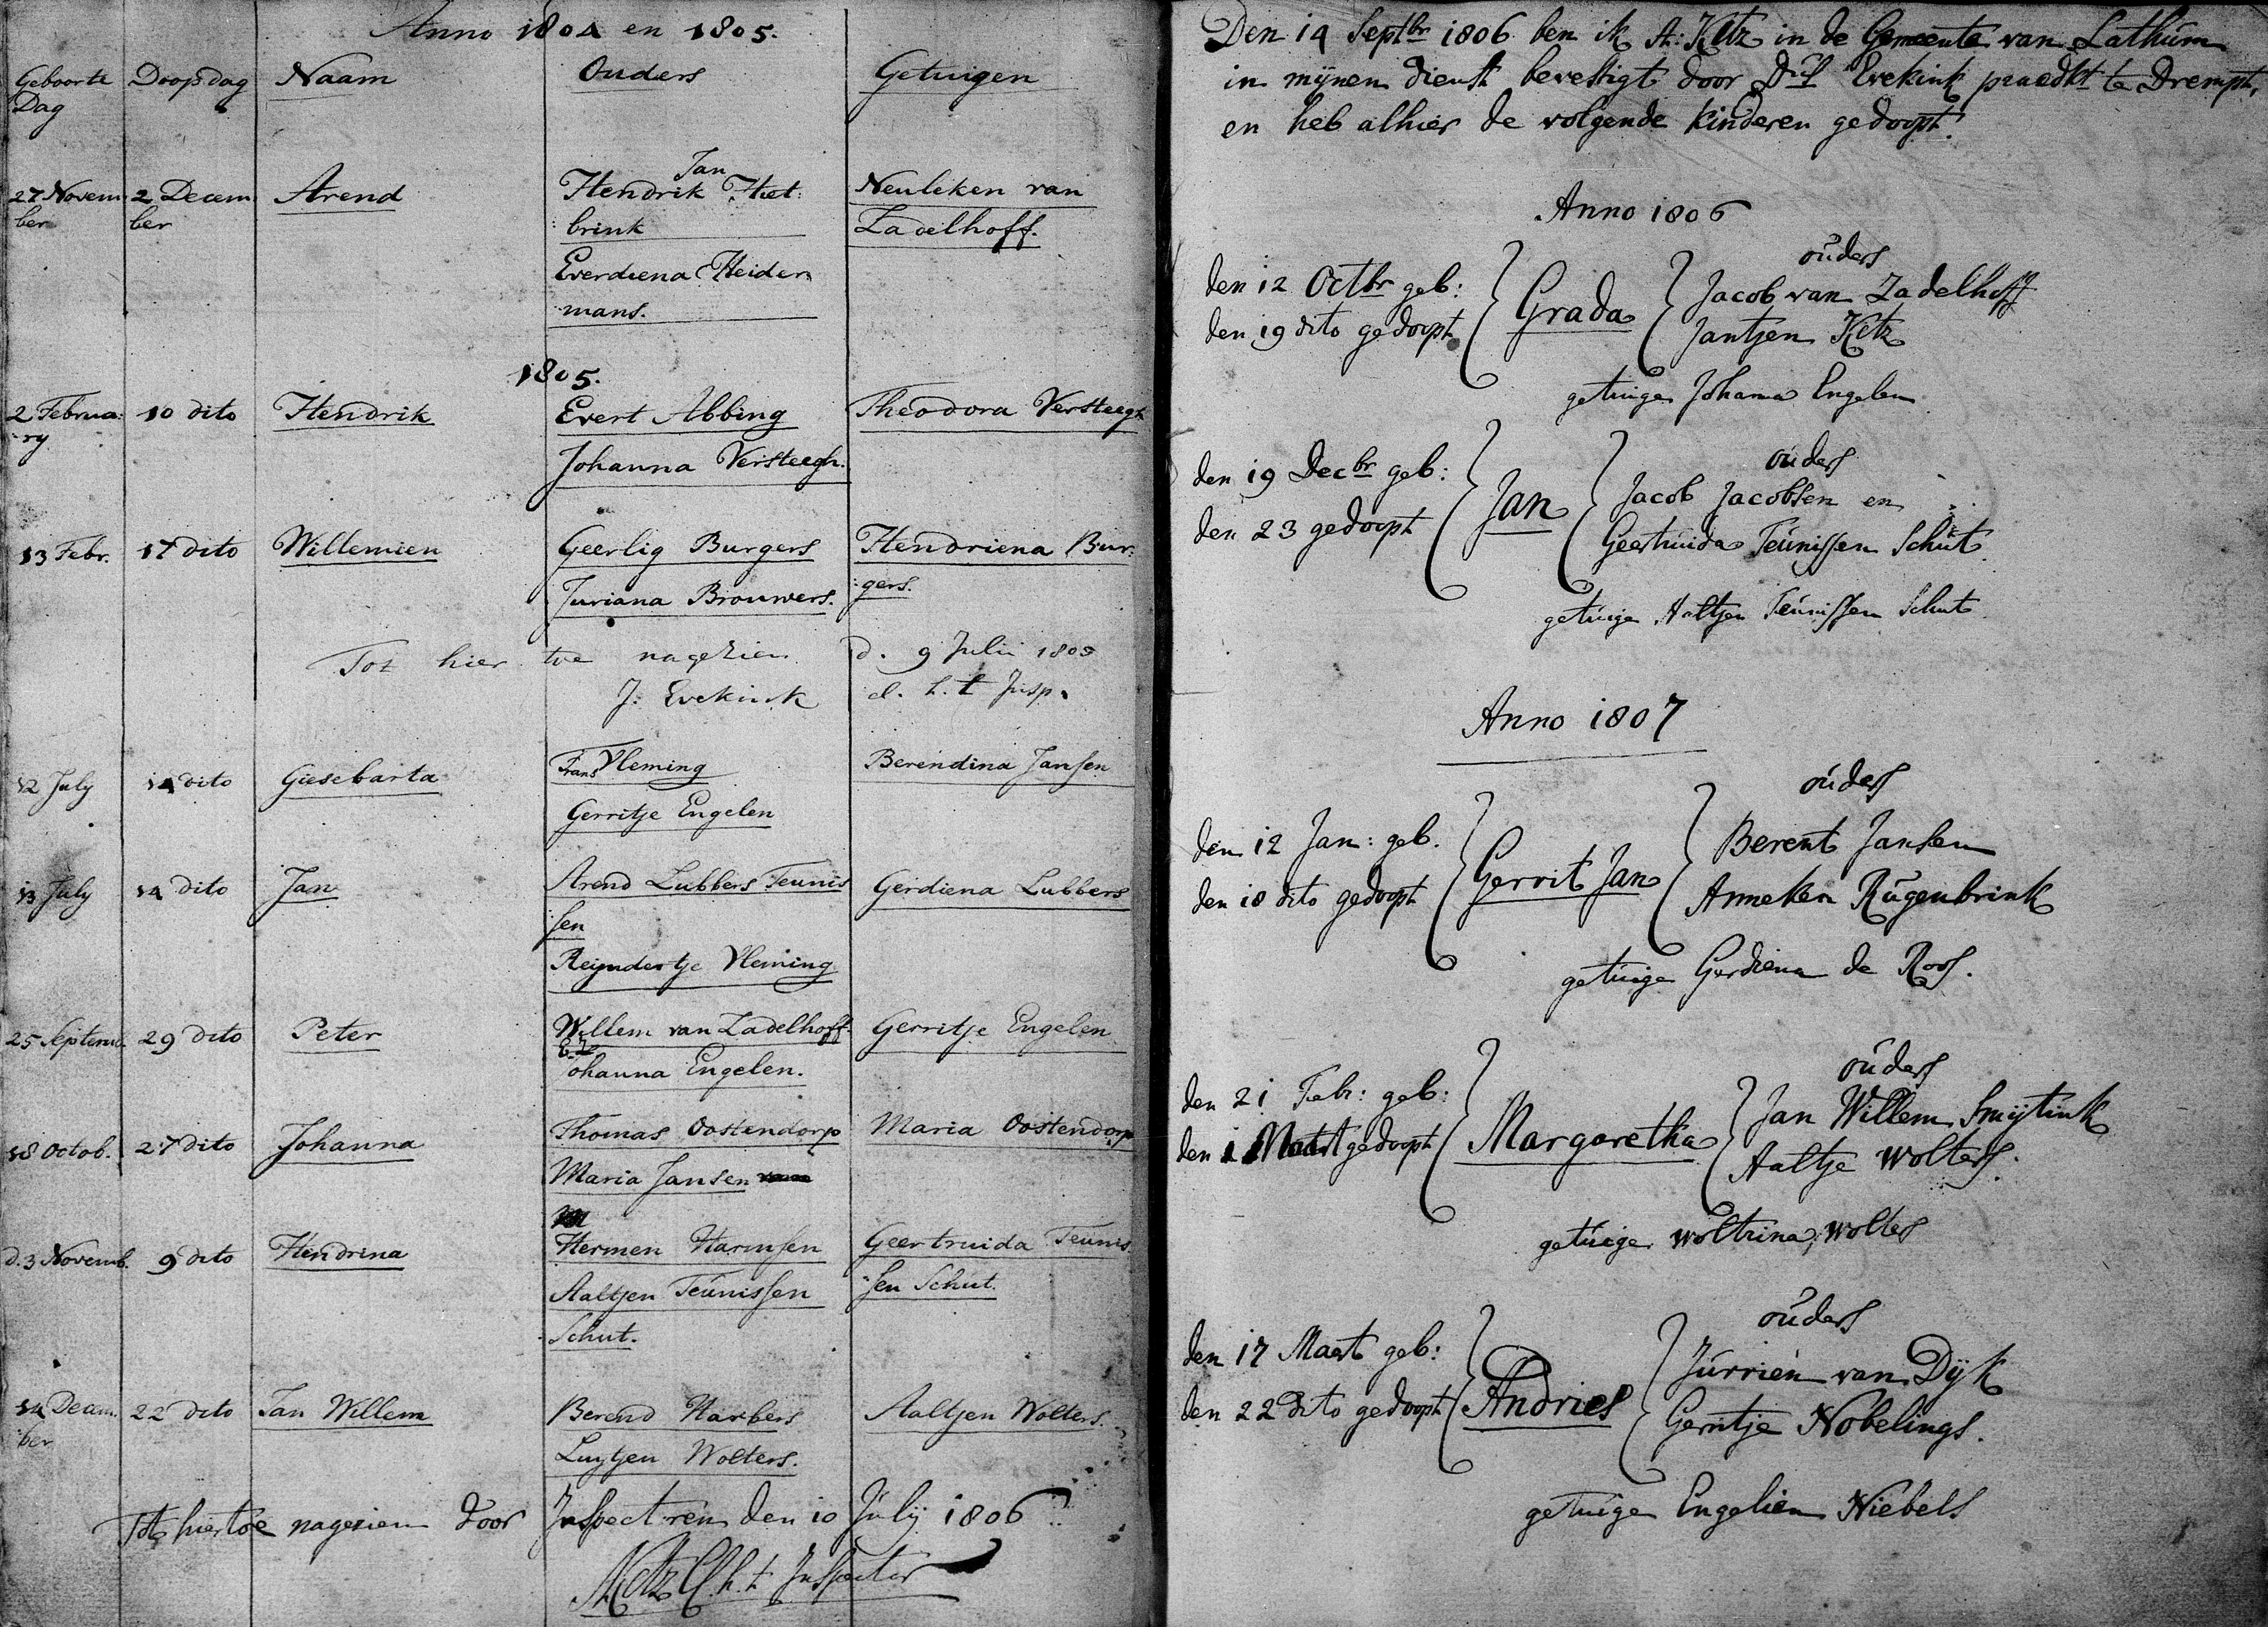 Anno 1804 en 1805.
Geboorte Doopsdag Naam Ouders Getuigen
Dag
Jan
27 Novem 2 Decem Arend Hendrik Het: Neuleken van
ber ber brink Zadelhoff.
Everdiena Heider
mans.
1805.
2 Februa: 10 dito Hendrik Evert Abbing Theodora Versteegh
ry Johanna Versteegh.
13 Febr. 17 dito Willemien Geerlig Burgers Hendriena Bur:
Juriana Brouwers. :gers.
Tot hier toe nagezien d. 9 Julii 1805
J: Evekink d. h. t. Insp.
12 July 14 dito Giesebarta Frans Vleming Berendina Jansen
Gerritje Engelen
13 July 14 dito Jan Arend Lubbers Teunis Gerdiena Lubbers
sen
Reijndertje Vleming
25 Septemb. 29 dito Peter Willem van Zadelhoff Gerritje Engelen
Johanna Engelen.
18 Octob. 27 dito Johanna Thomas Oostendorp Maria Oostendorp
Maria Jansen
d. 3 Novemb. 9 dito Hendrina Hermen Harmsen Geertruida Teunis
Aaltjen Teunissen sen Schut.
Schut.
14 Decem. 22 dito Jan Willem Berend Harbers Aaltjen Wolters.
ber Luytjen Wolters.
Tot hiertoe nagezien door Inspectoren den 10 July 1806
A: Ketz h.t. Inspector
Den 14 Septbr 1806 ben ik A: Ketz in de Gemeente van Lathum
in mijnen dienst bevestigt door Ds Evekink praedkt te Drempt,
en heb alhier de volgende kinderen gedoopt.
Anno 1806
ouders
den 12 Octbr geb: Grada Jacob van Zadelhoff
den 19 dito gedoopt Jantjen Ketz
getuige Johanna Engelen
ouders
den 19 Decbr geb: Jan Jacob Jacobsen en
den 23 gedoopt Geertruida Teunissen Schut
getuige Aaltjen Teunissen Schut
Anno 1807
ouders
den 12 Jan: geb. Gerrit Jan Berent Jansen
den 18 dito gedoopt Anneken Rugenbrink
getuige Gerdiena de Roos.
ouders
den 21 Febr: geb: Margaretha Jan Willem Smijtink
den 1 Maart gedoopt Aaltje Wolters.
getuige Woltrina Wolters
ouders
den 17 Maart geb: Andries Jurrien van Dijk
den 22 dito gedoopt Gerritje Nobelings.
getuige Engelien Niebels